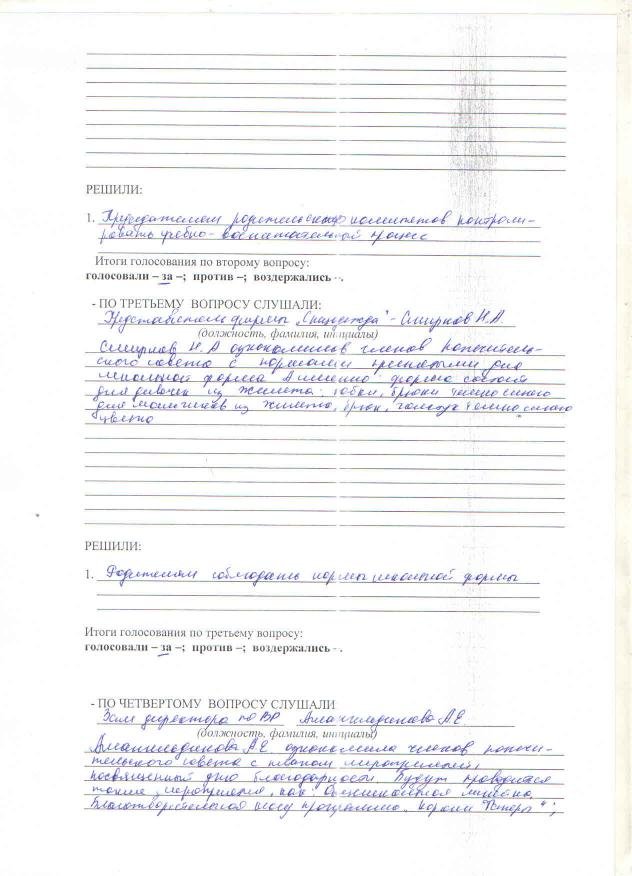 РЕШИЛИ:
1. Председателям родительских комитетов контроли-
ровать учебно-воспитательный процесс
Итоги голосования по второму вопросу:
голосовали – за –; против –; воздержались -.
- ПО ТРЕТЬЕМУ ВОПРОСУ СЛУШАЛИ:
Представителем фирмы „Спецодежда" - Смирнов Н.А.
(должность, фамилия, инициалы)
Смирнов Н.А ознакомил членов попечитель-
ского совета с нормами для
школьной формы А именно форма состоит
для девочек из жилета, юбки, брюки темно синего
для мальчиков из жилета, брюк, галстук темно синего
цвета
РЕШИЛИ:
1. Родителям соблюдать нормы школьной формы
Итоги голосования по третьему вопросу:
голосовали – за –; против –; воздержались - .
- ПО ЧЕТВЕРТОМУ ВОПРОСУ СЛУШАЛИ
Зам директора по ВР А.Е.
(должность, фамилия, инициалы)
А.Е. ознакомила членов попечи-
тельского совета с планом мероприятий,
посвященный дню благодарности. Будут проводится
такие мероприятия, как:
Благотворительная программа